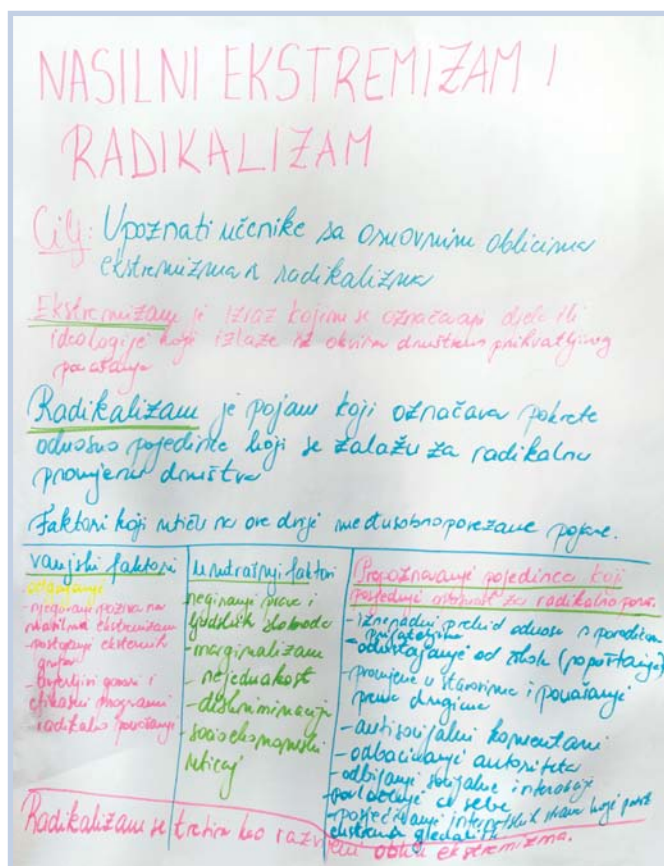 NASILNI EKSTREMIZAM I
RADIKALIZAM
Cilj: Upoznati učenike sa osnovnim oblicima
ekstremizma i radikalizma
Ekstremizam je izraz kojim se označavaju djela ili
ideologije koji izlaze iz okvira društveno prihvatljivog
ponašanja
Radikalizam je pojam koji označava pokrete
odnosno pojedince koji se zalažu za radikalnu
promjenu društva
Faktori koji utiču na ove dvije međusobno povezane pojave.
vanjski faktori
- njegovanje poziva na
nasilni ekstremizam
- postojanje ekstremnih
grupa
govori i
efikasni programi
- radikalno ponašanje
unutrašnji faktori
- negiranje prava i
ljudskih sloboda
- marginalizam
- nejednakost
- diskriminacija
- socioekonomski
uticaj
Prepoznavanje pojedinca koji
posjeduje za radikalno
- iznenadni prekid odnosa s porodicom
prijateljima
- odustajanje od škole
- promjene u stavovima i ponašanje
prema drugima
- antisocijalni komentari
- odbacivanje autoriteta
- odbijanje socijalne interakcije
povlačenje u sebe
- posjećivanje internetskih strana koje
ekstremna gledališta
Radikalizam se tretira kao razvijeni oblik ekstremizma.